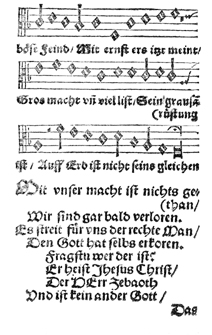 böse Feind / Mit ernst ers itzt meint /
Gros macht vñ viel list / Sein grausã
(rüstung
ist / Auff Erd ist nicht seins gleichen
Mit vnser macht ist nichts ge-
(than /
Wir sind gar bald verloren.
Es streit für vns der rechte Man /
Den Gott hat selbs erkoren.
Fragstu wer der ist?
Er heist Jhesus Christ /
Der HErr Zebaoth
Vnd ist kein ander Gott /
Das